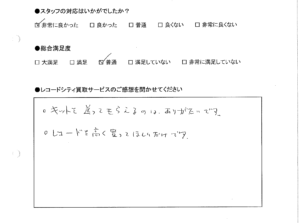 ●スタッフの対応はいかがでしたか？
☑非常に良かった □良かった □普通 □良くない □非常に良くない
●総合満足度
□大満足 □満足 ☑普通 □満足していない □非常に満足していない
●レコードシティ買取サービスのご感想を聞かせてください
○キットを送ってもらえるのは、ありがたいです。
○レコードを高く買ってほしいだけです。